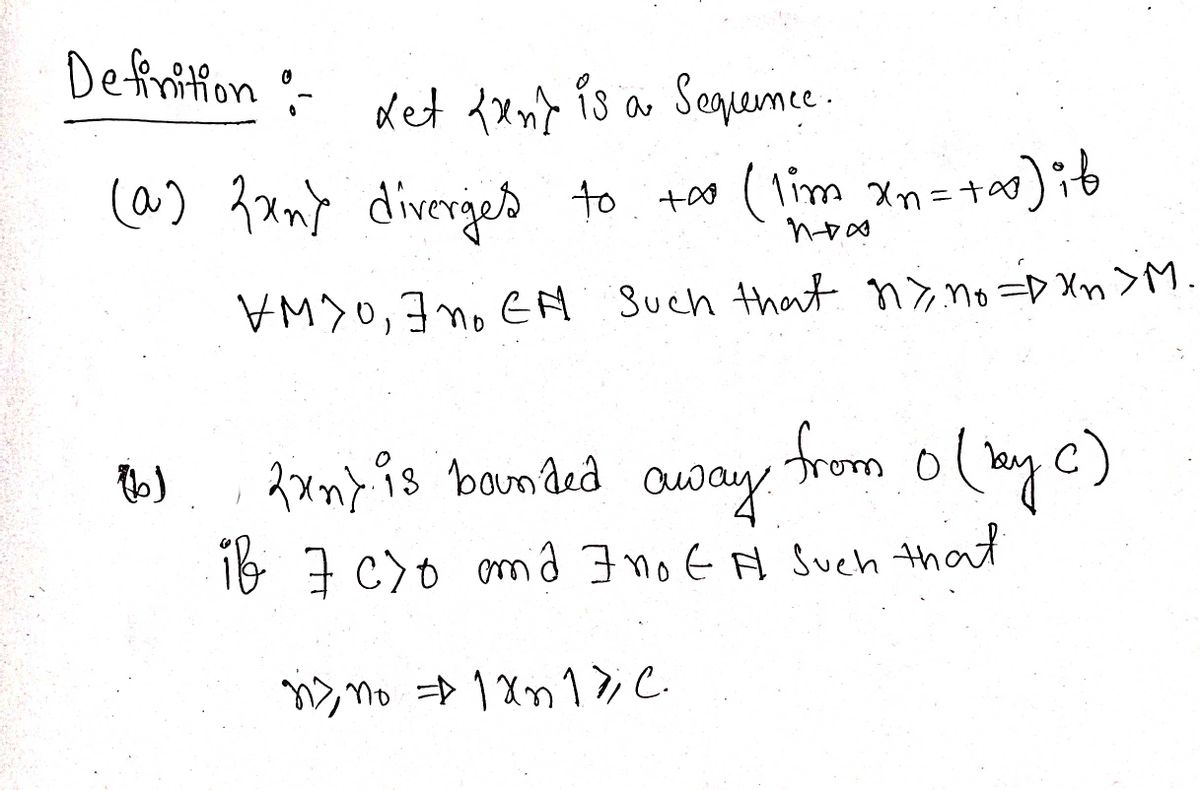 Definition :- Let {xn} is a Sequence.
(a) {xn} diverges to +∞ (lim xn = +∞) if
n→∞
∀M>0, ∃ n₀ ∈ ℕ Such that n ≥ n₀ ⇒ xn > M.
(b) {xn} is bounded away from 0 (by c)
if ∃ c>0 and ∃ n₀ ∈ ℕ Such that
n ≥ n₀ ⇒ |xn| ≥ c.